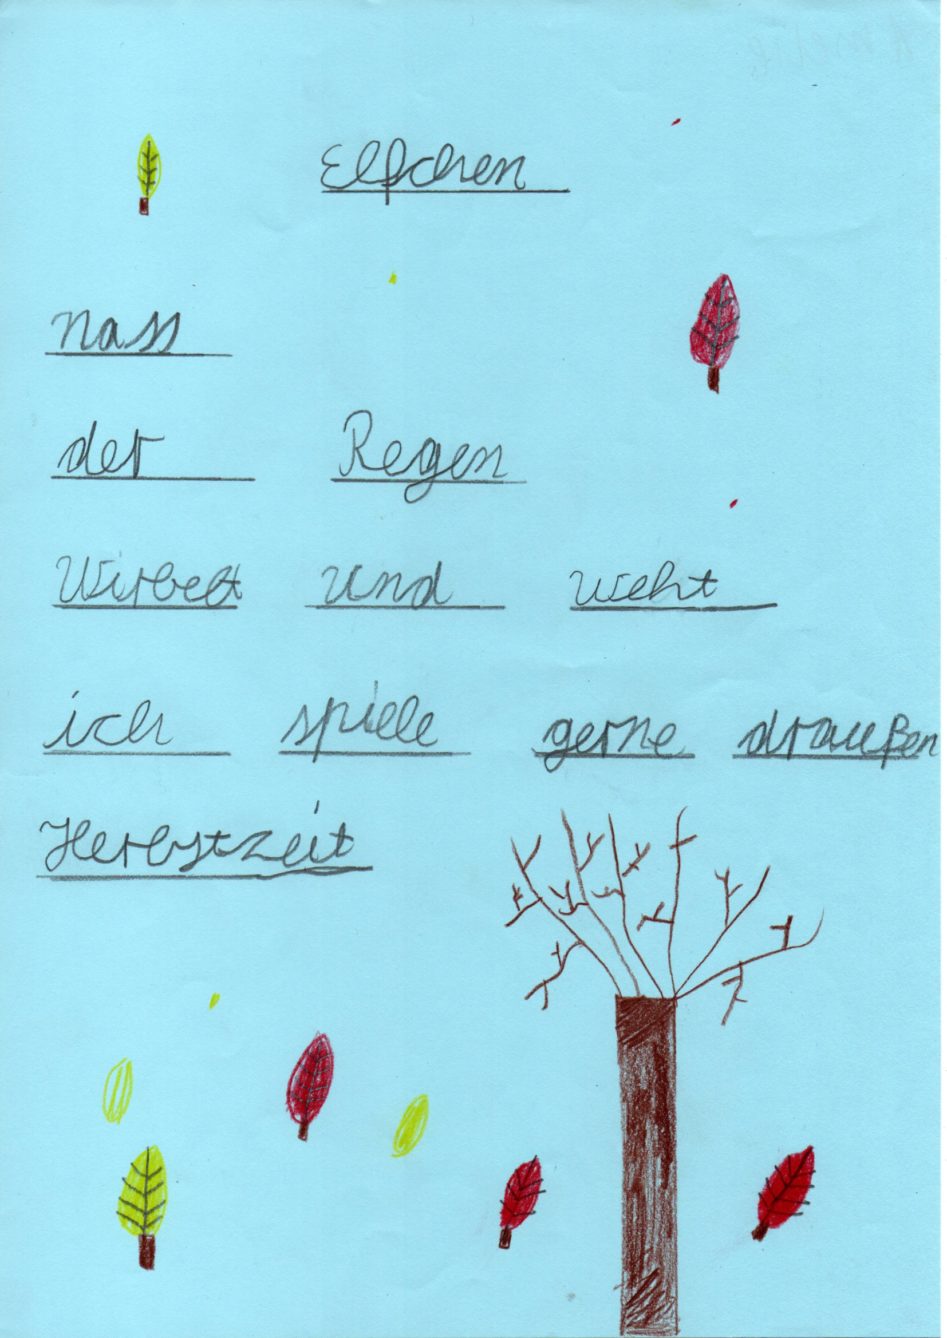 Elfchen
nass
der Regen
Wirbelt und weht
ich spiele gerne draußen
Herbstzeit